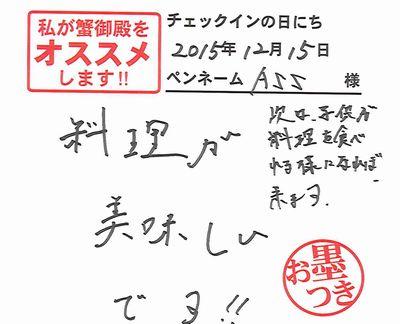 私が蟹御殿を
オススメ
します!!
チェックインの日にち
2015年12月15日
ペンネーム ASS 様
料理が
美味しい
です!!
次は、子供が
料理を食べ
れる様になれば
来ます.
お墨つき